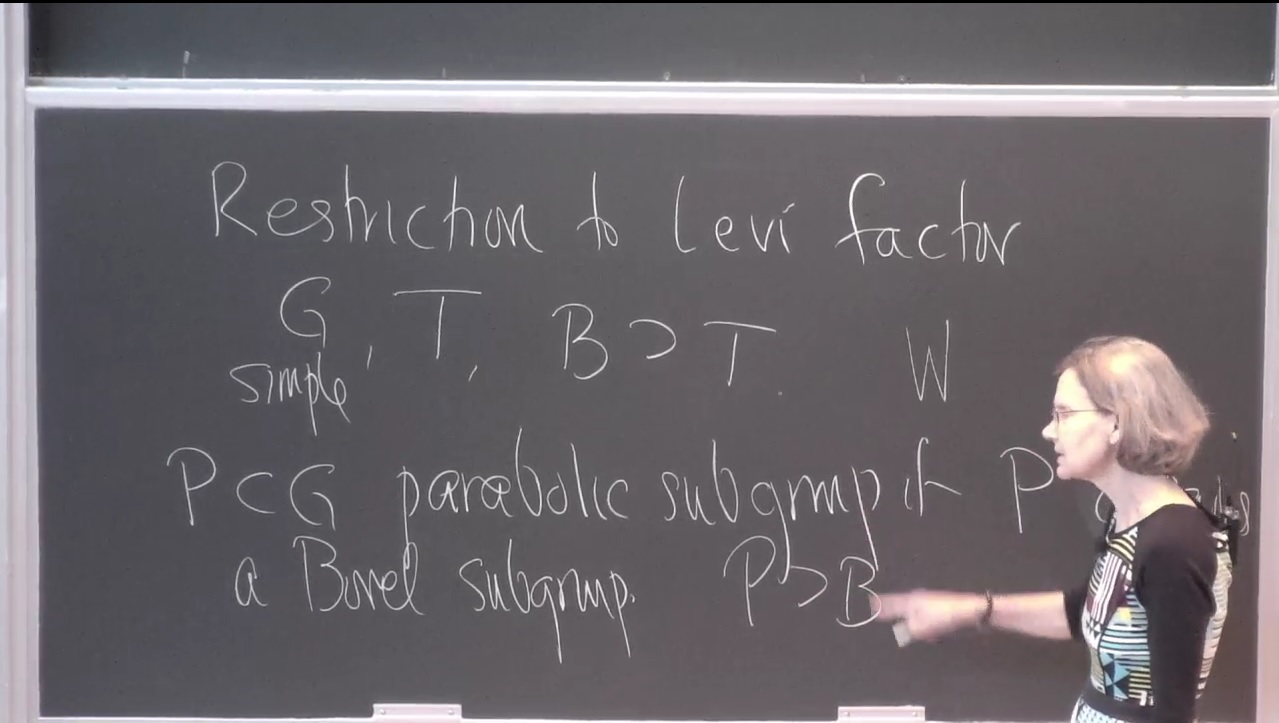 Restriction to Levi factor
G, T, B ⊃ T. W
simple
P ⊂ G parabolic subgroup if P
a Borel subgroup. P ⊃ B